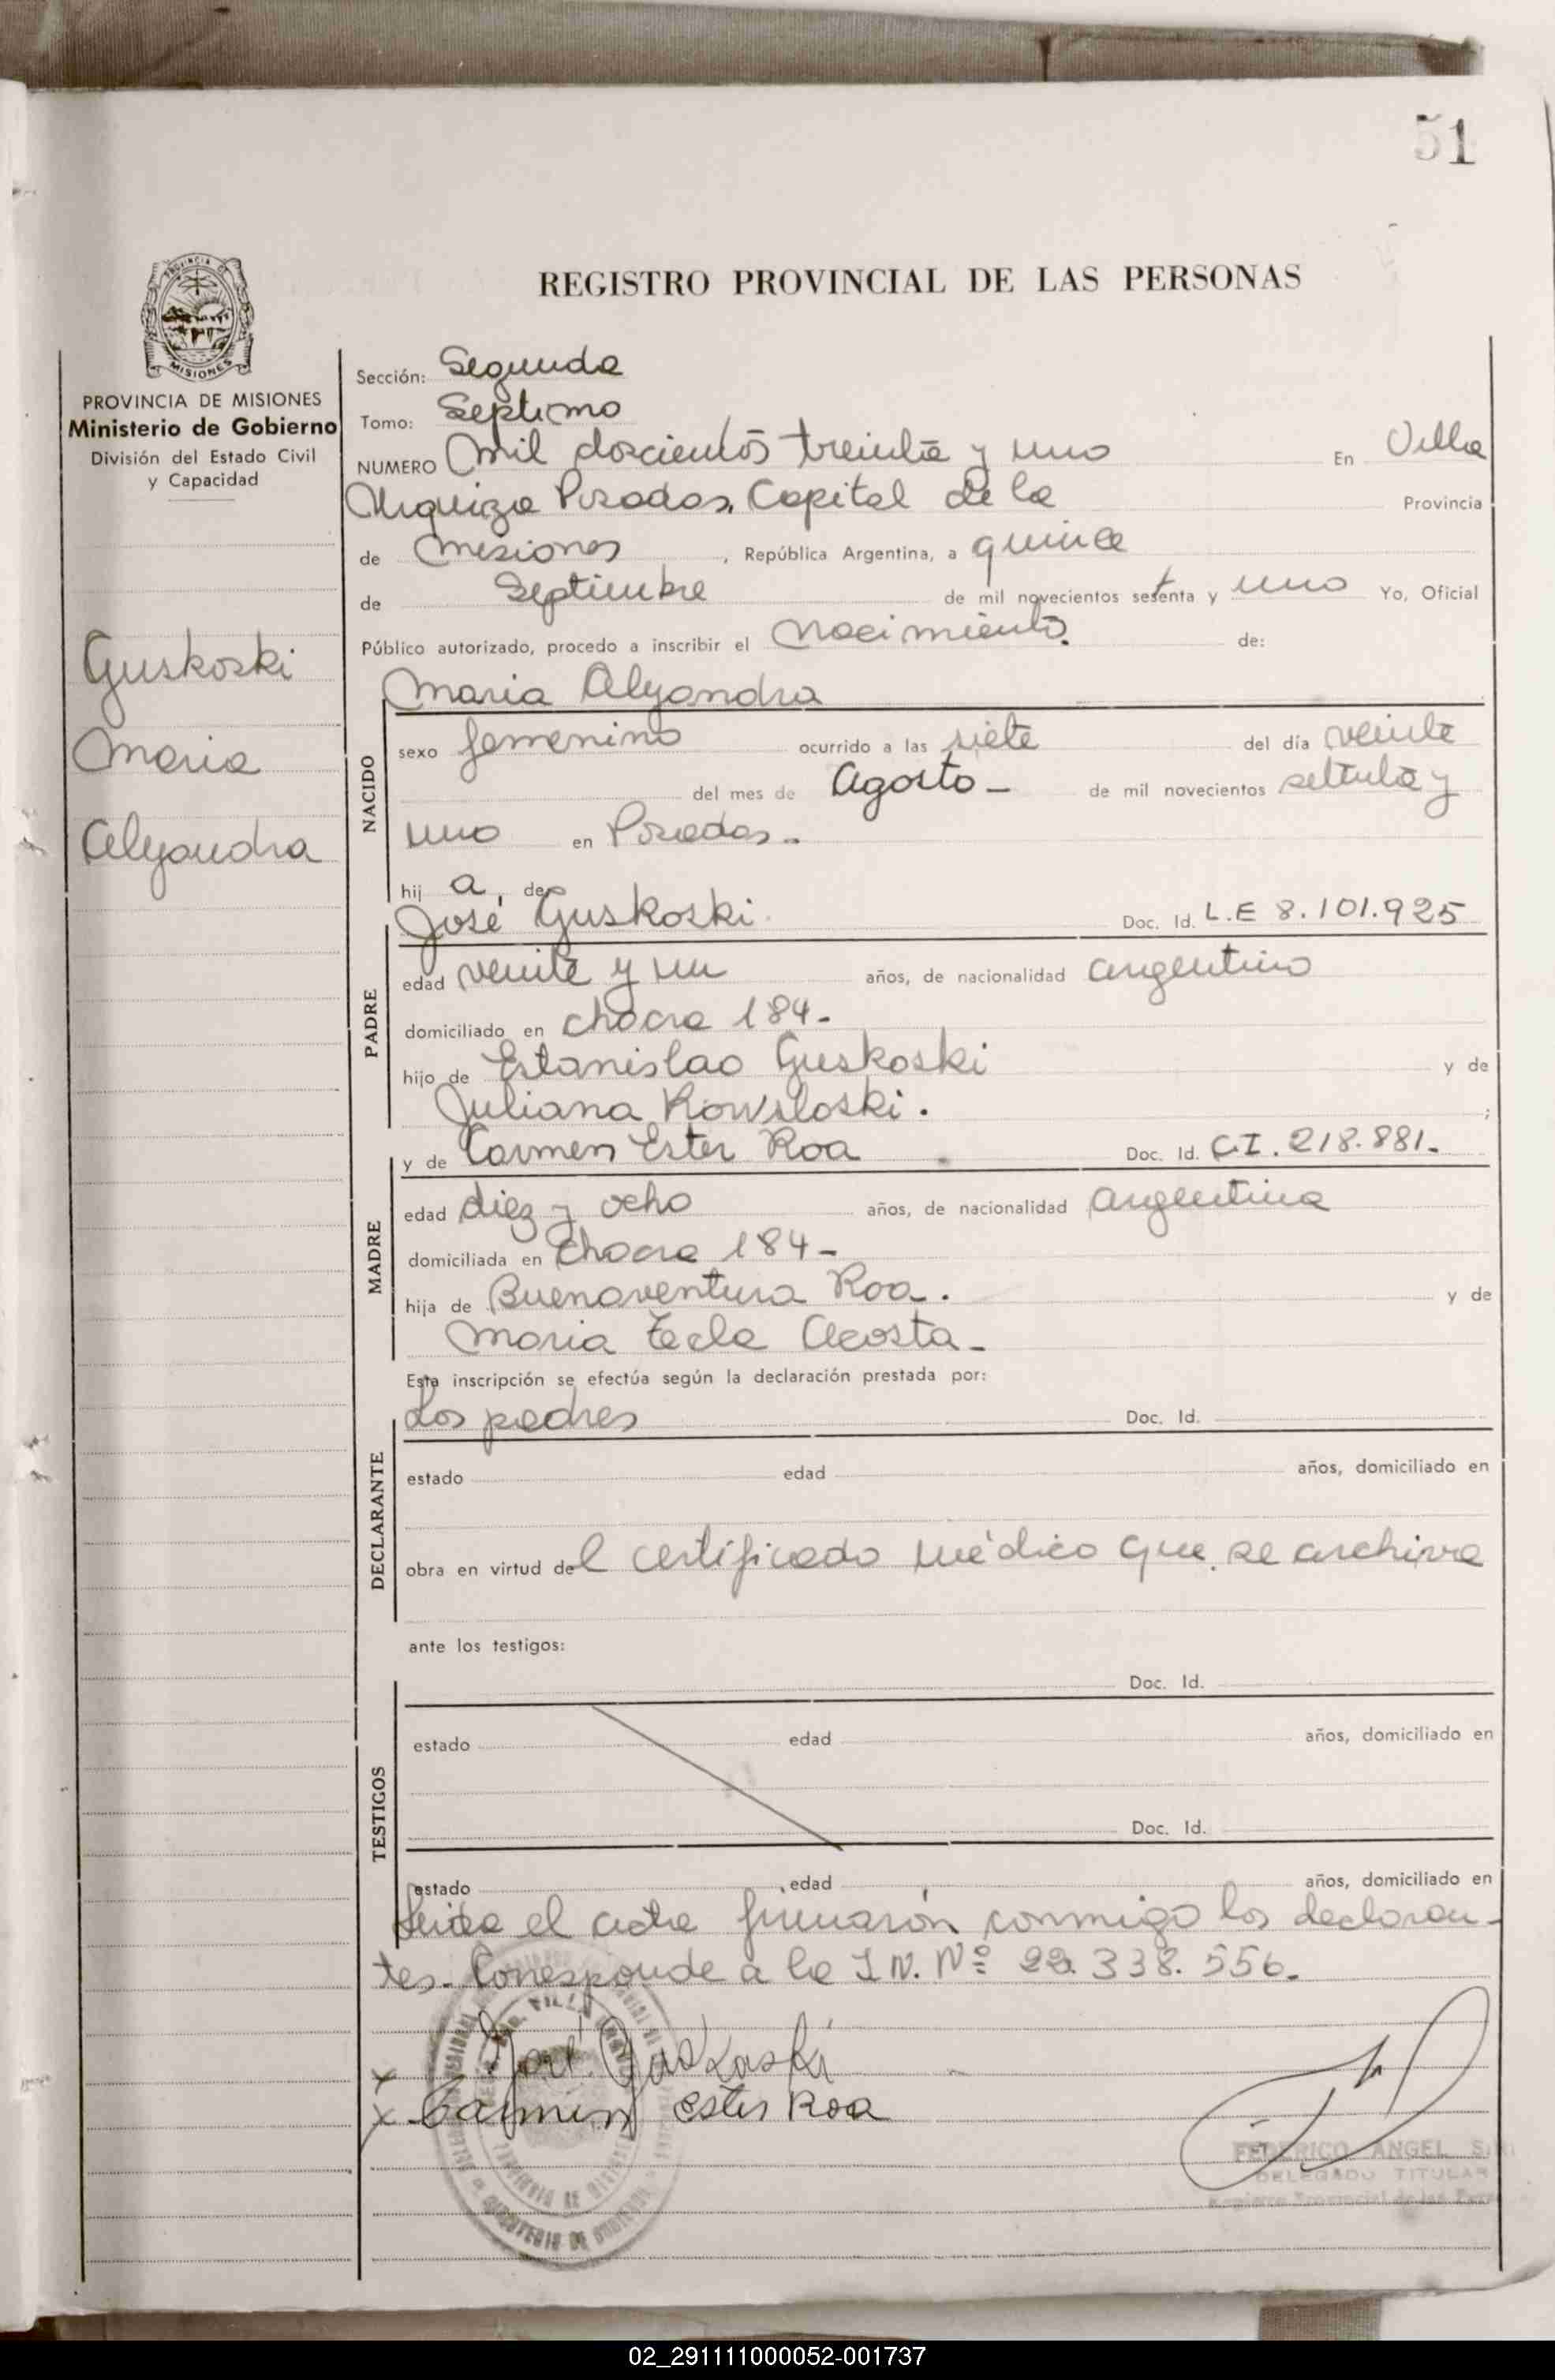 51
REGISTRO PROVINCIAL DE LAS PERSONAS
PROVINCIA DE MISIONES
Ministerio de Gobierno
División del Estado Civil
y Capacidad
Guskoski
Maria
Alejandra
Sección: Segunda
Tomo: Septimo
NUMERO Mil doscientos treinta y uno En Villa
Urquiza Posadas, Capital de la Provincia
de Misiones, República Argentina, a quince
de Septiembre de mil novecientos setenta y uno Yo, Oficial
Público autorizado, procedo a inscribir el Nacimiento de:
Maria Alejandra
NACIDO
sexo femenino ocurrido a las siete del día veinte
del mes de Agosto - de mil novecientos setenta y
uno en Posadas -
hij a, de
José Guskoski Doc. Id. L.E 8.101.925
PADRE
edad veinte y un años, de nacionalidad argentino
domiciliado en chacra 184 -
hijo de Estanislao Guskoski y de
Juliana Kowsloski. ;
y de Carmen Ester Roa Doc. Id. C.I. 218.881 -
MADRE
edad diez y ocho años, de nacionalidad argentina
domiciliada en chacra 184 -
hija de Buenaventura Roa. y de
Maria Tecla Acosta -
Esta inscripción se efectúa según la declaración prestada por:
Los padres Doc. Id.
DECLARANTE
estado edad años, domiciliado en
obra en virtud del certificado médico que se archiva
ante los testigos:
Doc. Id.
TESTIGOS
estado edad años, domiciliado en
Doc. Id.
estado edad años, domiciliado en
Leida el acta firmarón conmigo los declaran-
tes. Corresponde a la I.N. Nº 22.338.556.
x José Guskoski
x Carmen Ester Roa
FEDERICO ANGEL
DELEGADO TITULAR
Registro Provincial de las
02_291111000052-001737